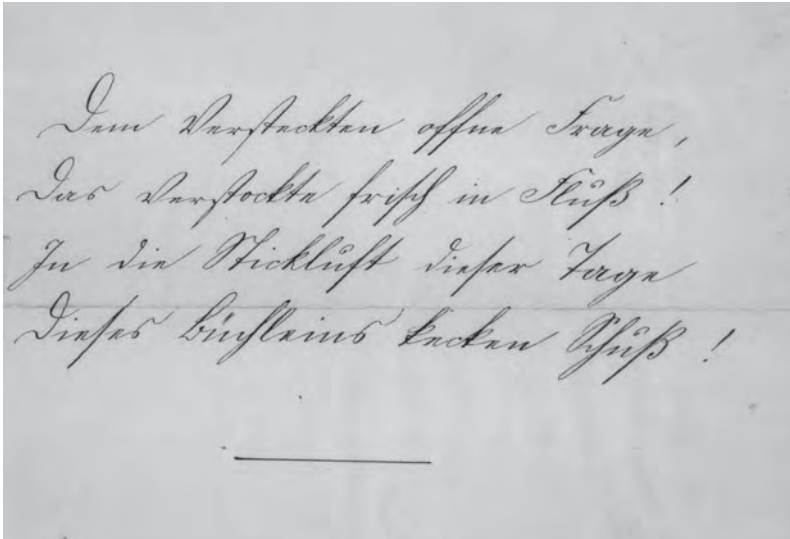 Dem Versteckten offne Frage,
Das Verstockte frisch in Fluß!
In die Stickluft dieser Tage
Dieses Büchleins kecken Schuß!